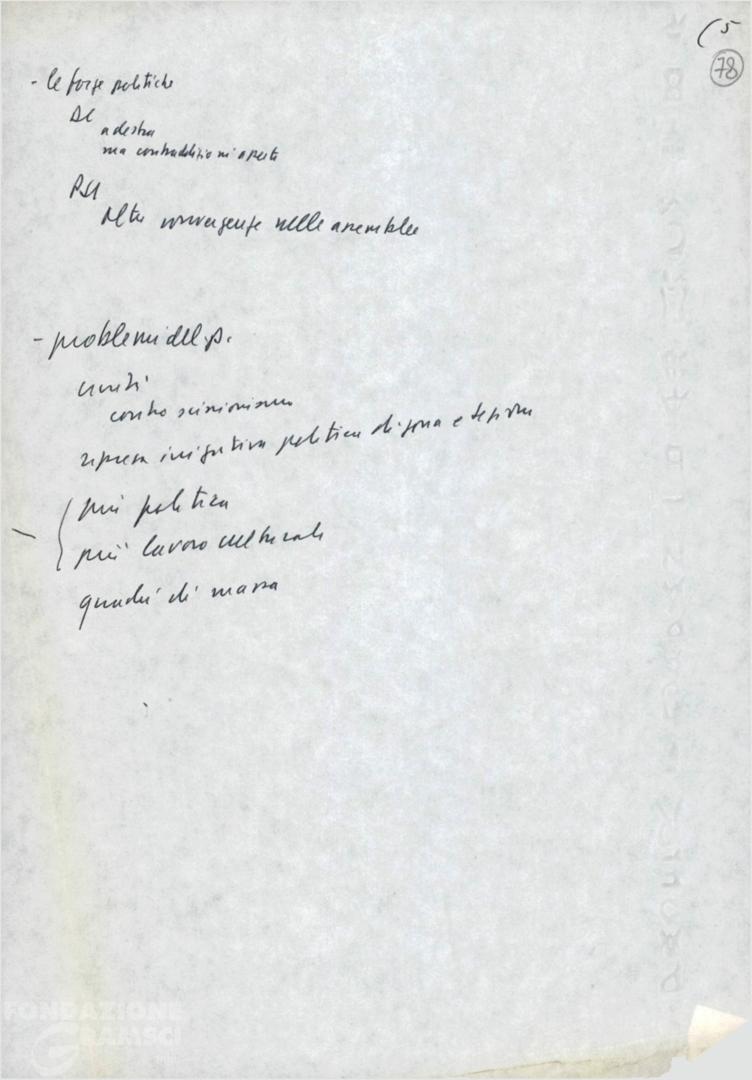 (5
78
- le forze politiche
DC
a destra
ma contraddizioni aperte
PSI
altre convergenze nelle assemblee
- problemi del p.
unità
contro scissionismo
ripresa iniziativa politica di zona e sezione
più politica
più lavoro culturale
quadri di massa
FONDAZIONE
GRAMSCI